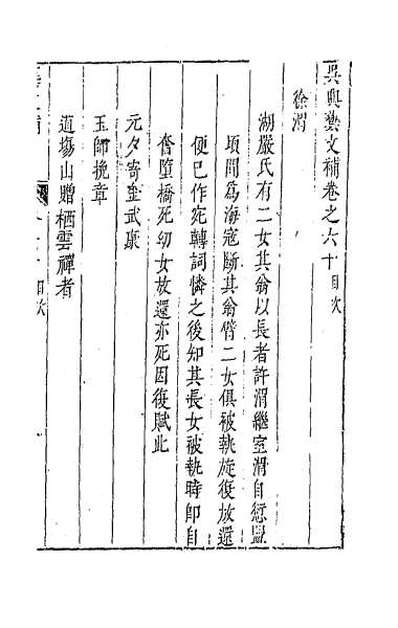 吳興藝文補卷之六十目次
徐渭
湖嚴氏有二女其翁以長者許渭繼室渭自愆盟
頃間爲海寇斷其翁臂二女俱被執旋復放還
便已作宛轉詞憐之後知其長女被執時即自
奮墮橋死幼女放還亦死因復賦此
元夕寄金武康
玉師挽章
道塲山贈栖雲禪者